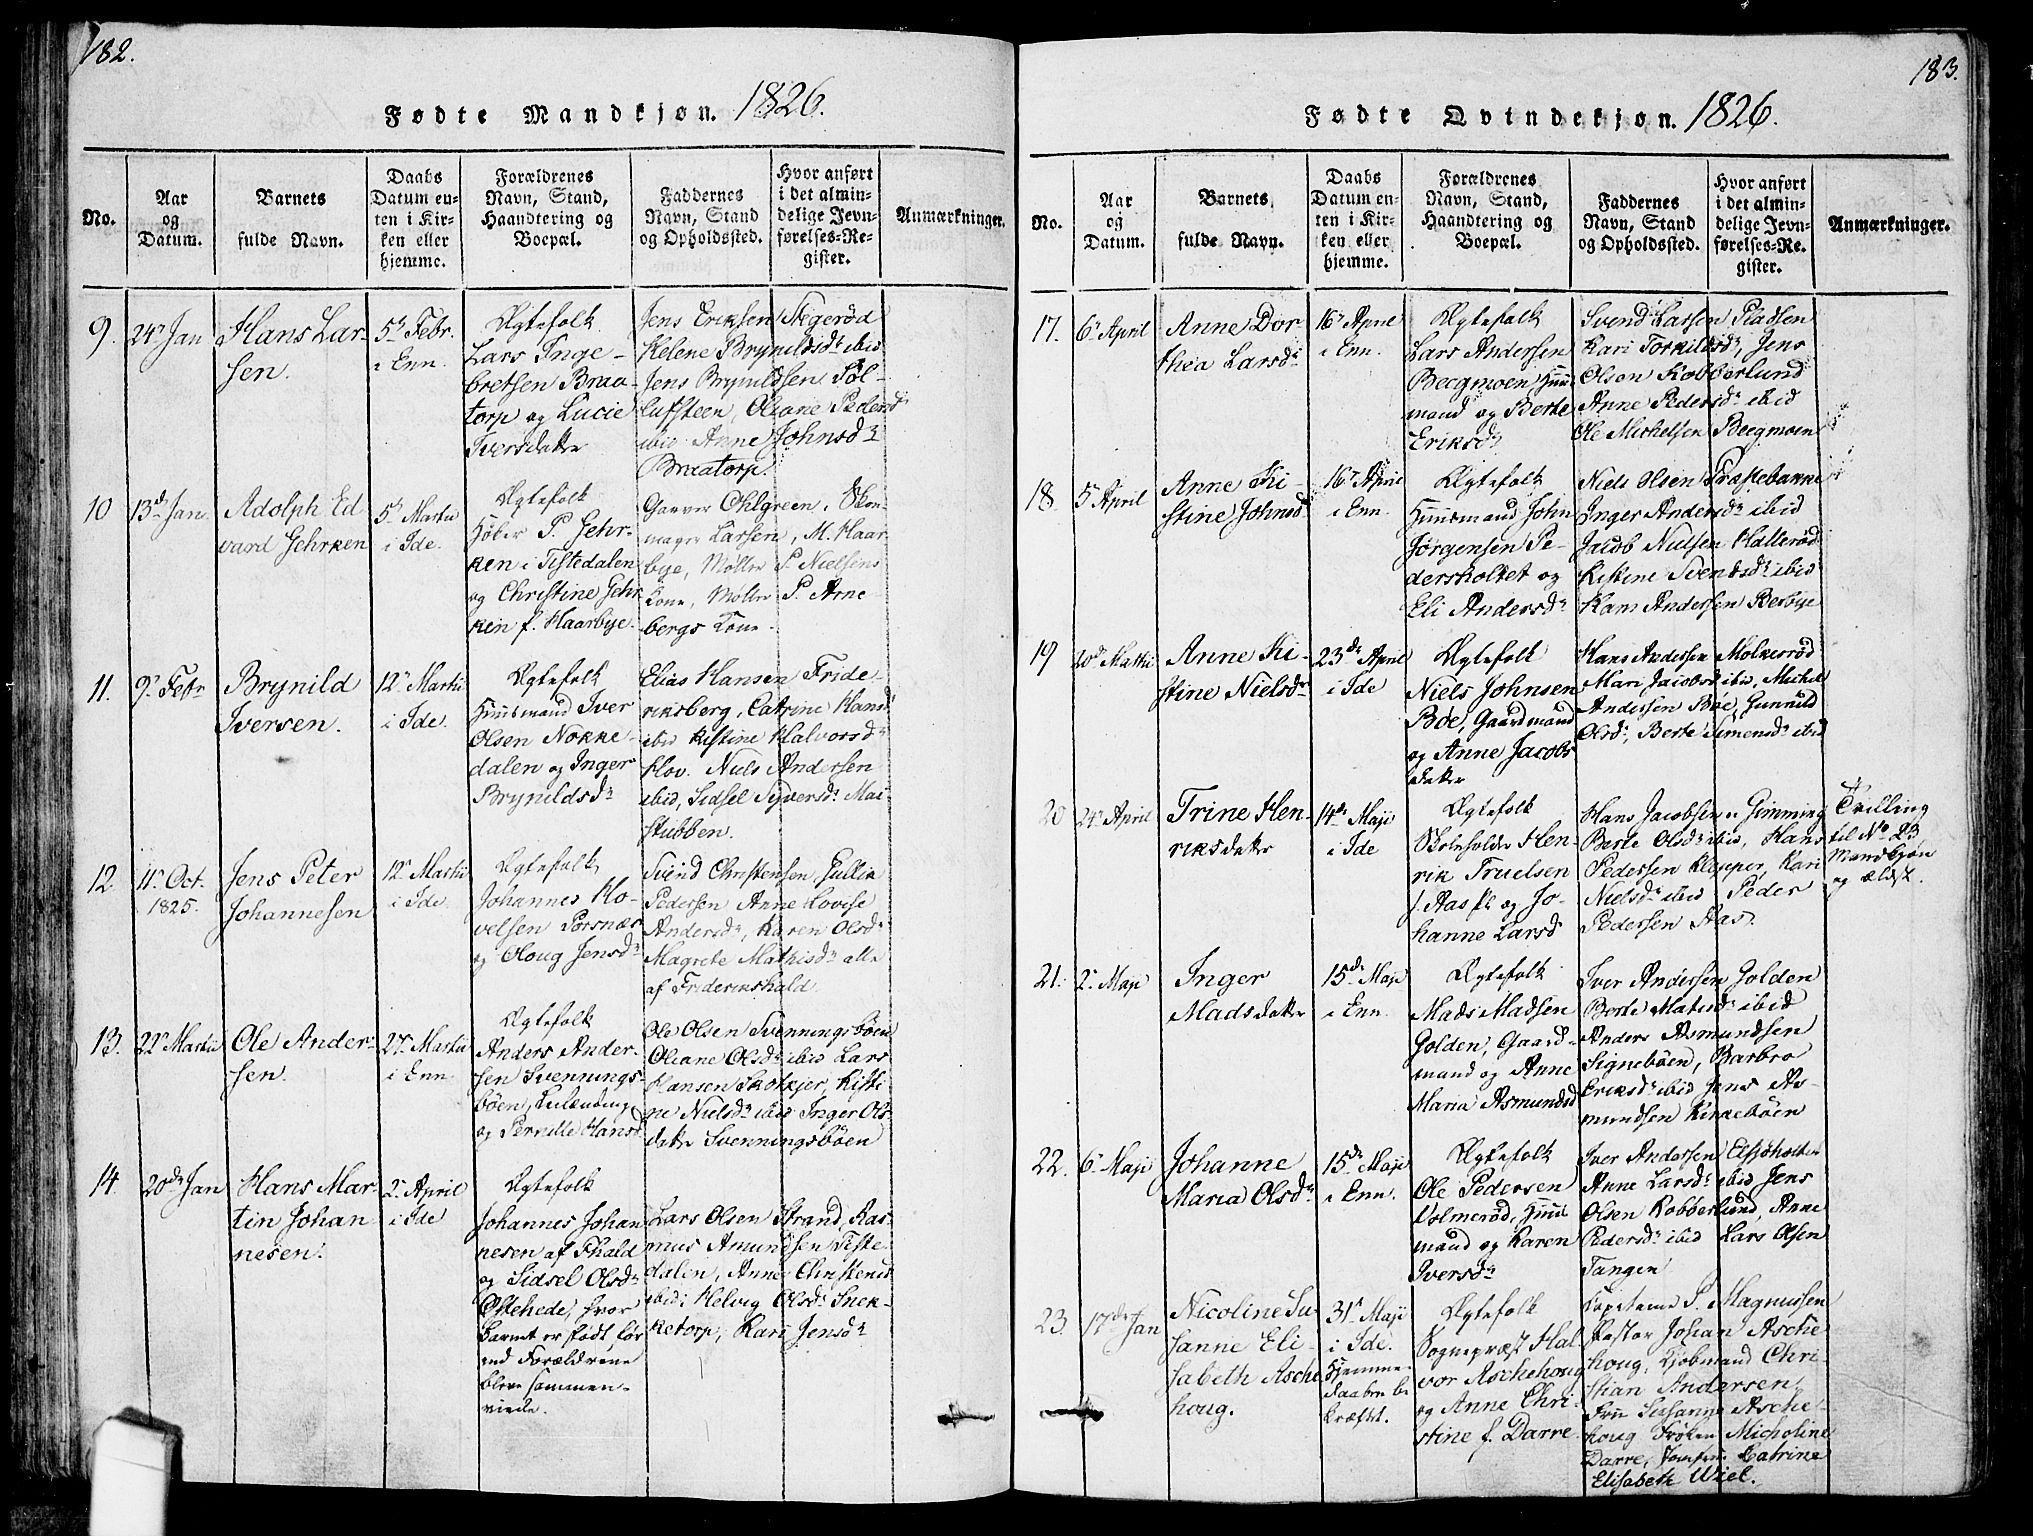 182.
Fødte Mandkjøn. 1826.
No.
Aar
og
Datum.
Barnets
fulde Navn.
Daabs
Datum en-
ten i Kir-
ken eller
hjemme.
Forældrenes
Navn, Stand,
Haandtering og
Boepæl.
Faddernes
Navn, Stand
og Opholdssted.
Hvor anført
i det almin-
delige Jevn-
førelses-Re-
gister.
Anmærkninger.
9.
24 Jan
Hans Lar-
sen.
5 Febr.
i Enn.
Ægtefolk
Lars Inge-
bretsen Braa-
torp og Lucie
Iversdatter
Jens Eriksen Stegerød
Helene Brynildsdr ibid
Jens Brynildsen Søl-
lufsteen, Oliane Pedersdr
ibid Anne Johnsdr
Braatorp.
10
13d Jan
Adolph Ed
vard Gehrken
5 Martii
i Ide.
Ægtefolk
P. Gehr-
ken i Tistedalen
og Christine Gehr
ken f. Haarbye.
Garver Ohlgreen, Skoe-
mager Larsen, M. Haar
bye, Møller P. Nielsens
Kone, Møller P. Arne
bergs Kone.
11.
9 Febr
Brynild
Iversen.
12 Martii
i Ide.
Ægtefolk
Huusmand Iver
Olsen Nokke-
dalen og Inger
Brynildsdr
Elias Hansen Fride-
riksberg, Catrine Hansdr
ibid Kistine Halvorsdr
Hov. Niels Andersen
ibid, Sidsel Syversdr Mai-
stubben.
12.
11 Oct.
1825.
Jens Peter
Johannesen
12 Martii
i Ide
Ægtefolk
Johannes Ho-
velsen Porsnæs
og Oloug Jensdr
Svend Christensen, Gullik
Pedersen Anne Lovise
Andersdr, Karen Olsdr
Magrete Mathisdr alle
af Friderikshald.
13.
22 Martii
Ole Ander-
sen.
27 Martii
i Enn.
Ægtefolk
Anders Ander-
sen Svennings-
bøen, Leilænding
og Pernille Hansdr
Ole Olsen Svenningsbøen
Oliane Olsdr ibid Lars
Hansen Skotkjer, Kisti
ne Nielsdr ibid Inger Ols
datter Svenningsbøen
14.
20de Jan
Hans Mar-
tin Johan-
nesen.
2 April
i Ide
Ægtefolk
Johannes Johan
nesen af Fhald
og Sidsel Olsdr
Østehede, hvor
Barnet er født før
end Forældrene
bleve sammen-
viede.
Lars Olsen Strand, Ras-
mus Amundsen Tiste-
dalen, Anne Christensdr
ibid: Helvig Olsdr Snek-
ketorp, Kari Jensdr
183.
Fødte Qvindekjøn. 1826.
No.
Aar
og
Datum.
Barnets
fulde Navn.
Daabs
Datum en-
ten i Kir-
ken eller
hjemme.
Forældrenes
Navn, Stand,
Haandtering og
Boepæl.
Faddernes
Navn, Stand
og Opholdssted.
Hvor anført
i det almin-
delige Jevn-
førelses-Re-
gister.
Anmærkninger.
17.
6 April
Anne Dor
thea Larsdr
16 April
i Enn.
Ægtefolk
Lars Andersen
Becgmoen Huus-
mand og Berte
Eriksdr
Svend Larsen Pladsen
Kari Torkildsdr, Jens
Olsen Kobberlund
Anne Pedersdr ibid
Ole Michelsen Becgmoen
18.
5 April
Anne Ki-
stine Johnsdr
16 April
i Enn.
Ægtefolk
Huusmand John
Jørgensen Pe-
dersholtet og
Eli Andersdr
Niels Olsen Præstebakke
Inger Andersdr ibid
Jacob Nielsen Hallerød
Kistine Svendsdr ibid
Hans Andersen Berbye
19
20d Martii
Anne Ki-
stine Nielsdr
23de April
i Ide
Ægtefolk
Niels Johnsen
Bøe, Gaardmand
og Anne Jacobs
datter
Hans Andersen Molkerød
Mari Jacobsd ibid, Michel
Andersen Bøe, Gunnild
Olsdr, Berte Simensdr ibid
20
24 April
Trine Hen
riksdatter
14de Maji
i Ide
Ægtefolk
Skoleholder Hen-
rik Truelsen
og Jo-
hanne Larsd
Hans Jacobsen Gimming
Berte Olsdr ibid, Hans
Pedersen Klepper, Kari
Nielsdr ibid Peder
Pedersen Aas.
Tvilling
til No 23
Mandkjøn
og ældst.
21.
2 Maji
Inger
Madsdatter
15de Maji
i Enn.
Ægtefolk
Mads Madsen
Golden, Gaard-
mand og Anne
Maria Asmundsd
Iver Andersen Golden
Berte Matisdr ibid
Anders Asmundsen
Signebøen, Barbro
Eriksdr ibid Jens As-
mundsen Kirkebøen
22.
6 Maji
Johanne
Maria Olsdr
15de Maji
i Enn.
Ægtefolk
Ole Pedersen
Volmerød, Huus
mand og Karen
Iversdr
Iver Andersen Elsjøholtet
Anne Larsdr ibid Jens
Olsen Kobberlund, Anne
Pedersdr ibid Lars Olsen
Tangen
23.
17de Jan
Nicoline Su
sanne Eli-
sabeth Asche
houg.
31 Maji
i Ide.
Hjemme-
daaben be
kræftet.
Ægtefolk
Sognepræst Hal-
vor Aschehoug
og Anne Chri-
stine f. Darre.
Capitaine P. Magnussen
Pastor Johan Asche
houg, Kjøbmand Chri-
stian Andersen,
Frue Susanne Asche-
houg Frøken Micholine
Darre, Jomfrue Catrine
Elisabeth Wiel.